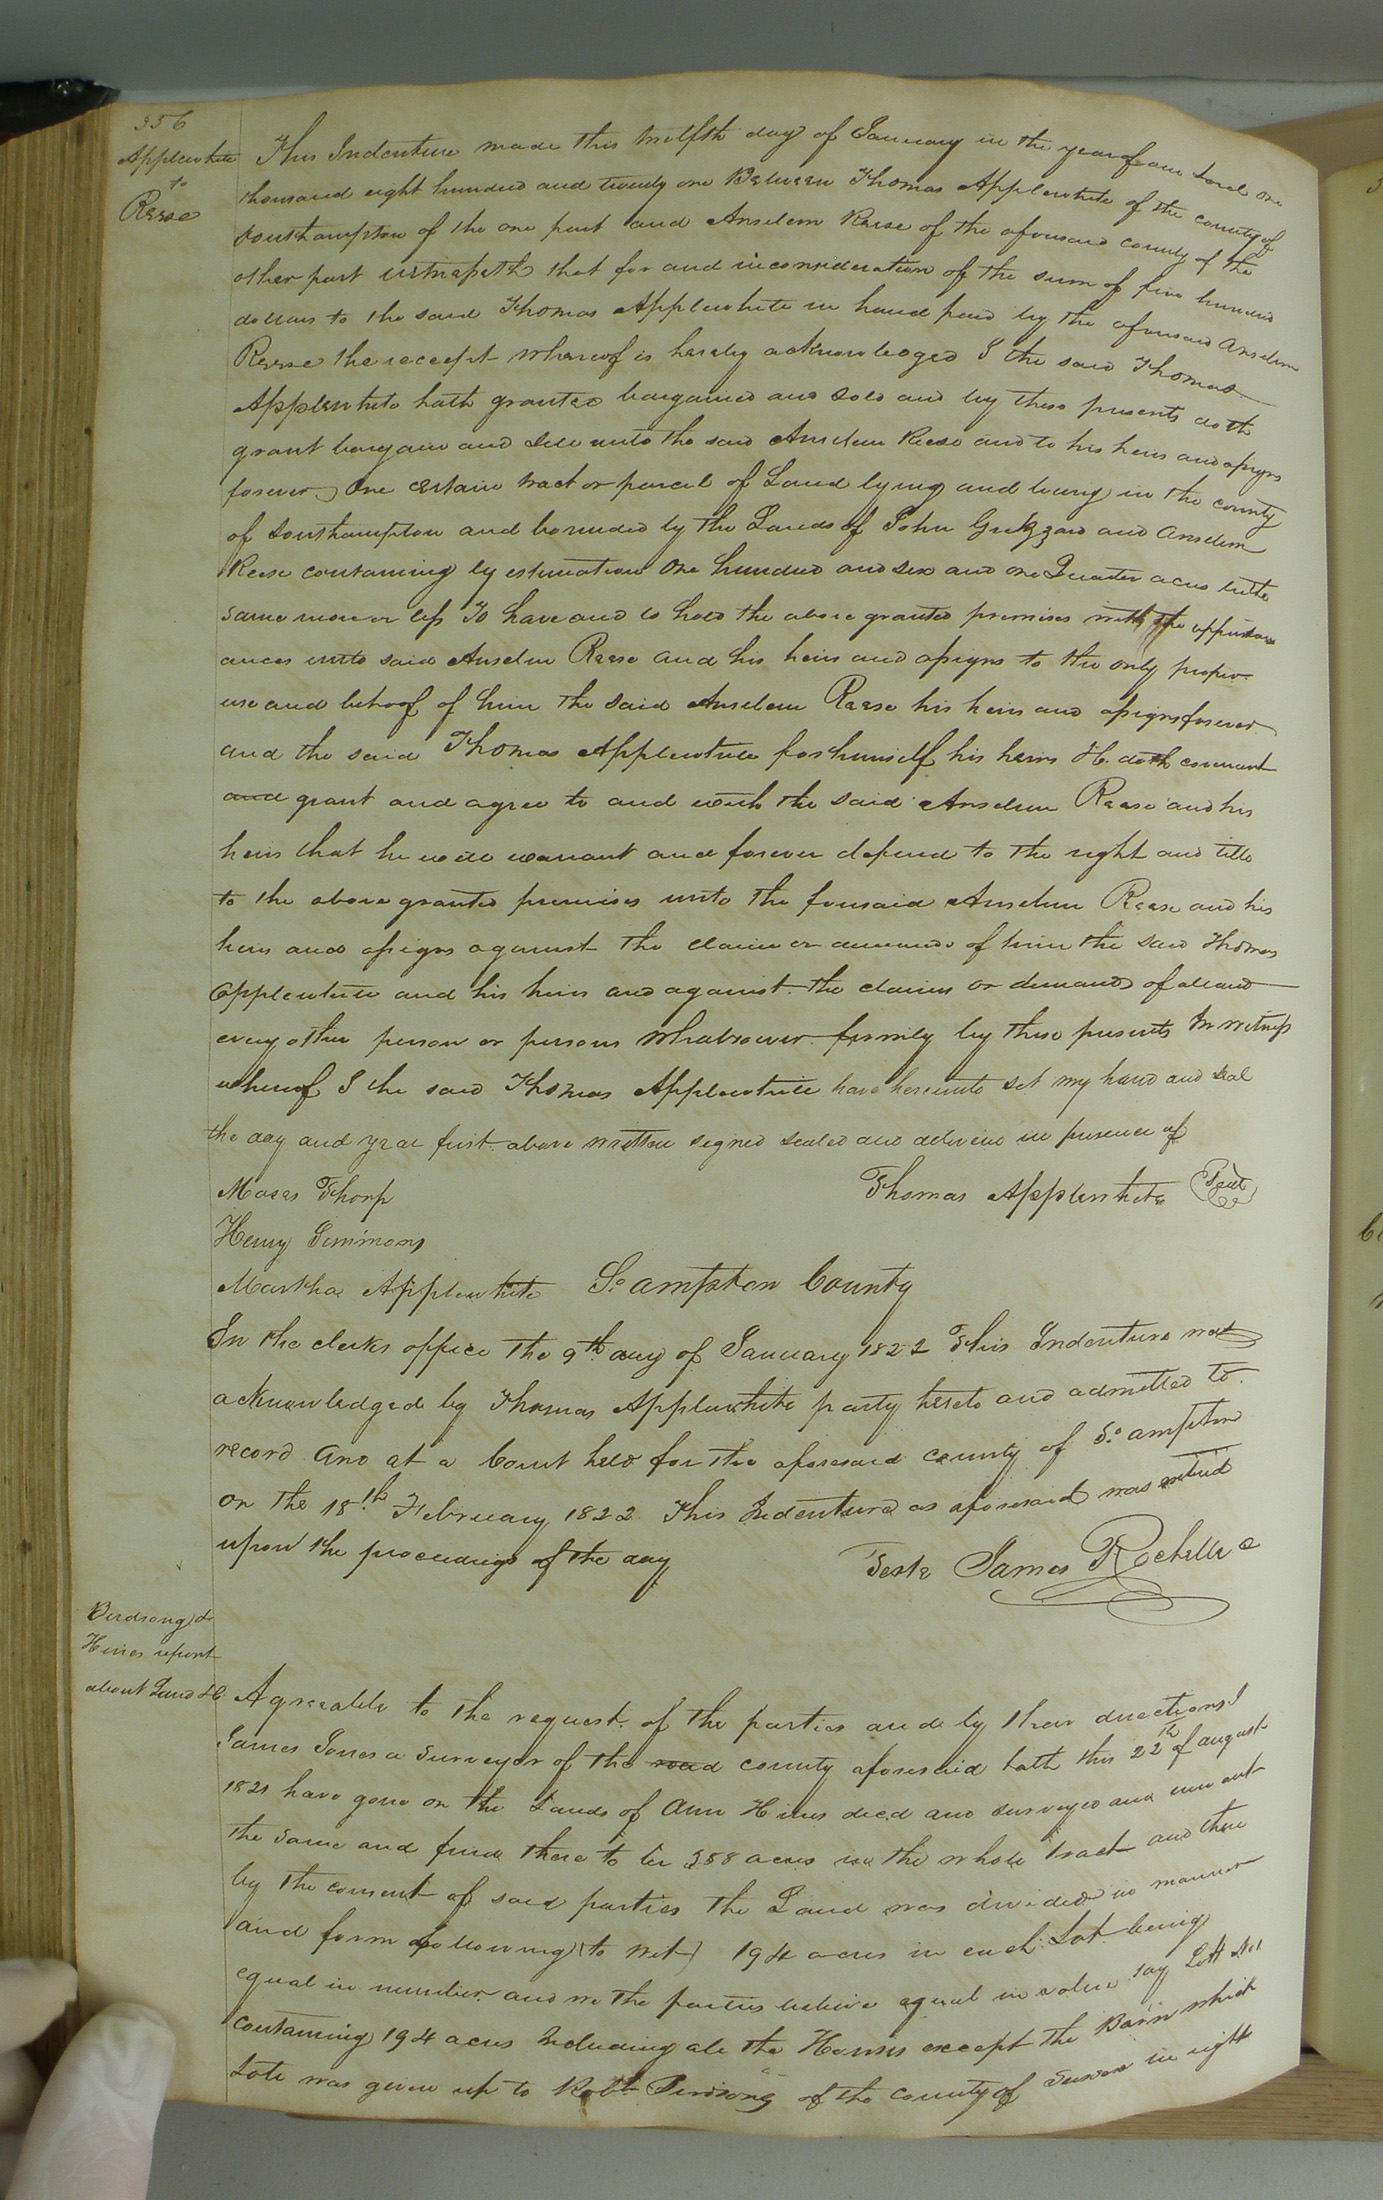 356
Applewhite
to
Reese
This Indenture made this twelfth day of January in the year of our Lord one
thousand eight hundred and twenty one Between Thomas Applewhite of the county of
Southampton of the one part and Anselem Reese of the aforesaid county of the
other part witnesseth that for and inconsideration of the sum of five hundred
dollars to the said Thomas Applewhite in hand paid by the aforesaid Anselem
Reese the receept whereof is hereby acknowledged I the said Thomas
Applewhite hath granted bargained and sold and by these presents doth
grant bargain and sell unto the said Anselem Reese and to his heirs and assigns
forever One certain tract or parcel of Land lying and being in the county
of Southampton and bounded by the Lands of John Grizzard and Anselem
Reese containing by estimation One hundred and six and one Quarter acres be the
same more or less To have and to hold the above granted premises with the appurten
ances unto said Anselem Reese and his heirs and assigns to the only proper
use and behoof of him the said Anselem Reese his heirs and assigns forever
and the said Thomas Applewhite for himself his heirs &c. doth covenant
and grant and agree to and with the said Anselem Reese and his
heirs that he will warrant and forever defend to the right and title
to the above granted premises unto the foresaid Anselem Reese and his
heirs and assigns against the claim or demands of him the said Thomas
Applewhite and his heirs and against the claims or demands of all and
every other person or persons whatsoever firmly by these presents In witness
whereof I the said Thomas Applewhite have hereunto set my hand and seal
the day and year first above written signed sealed and delivered in presence of
Moses Thorp Thomas Applewhite Seal
Henry Simmons
Martha Applewhite So ampton County
In the clerks office the 9th day of January 1822 This Indenture was
acknowledged by Thomas Applewhite party hereto and admitted to
record And at a Court held for the aforesaid county of So ampton
on the 18th February 1822 This Indenture as aforesaid was entered
upon the proceedings of the day Teste James Rochelle c
Birdsong &
Hines report
about Land &c
Agreeable to the request of the parties and by thear directions I
James Jones a Surveyor of the road county aforesaid hath this 22th of august
1821 have gone on the Lands of Ann Hines decd and surveyed and run out
the same and find there to be 388 acres in the whole tract and then
by the consent of said parties the Land was divided in manner
and form following (to wit) 194 acres in each Lot being
equal in number and we the parties believe equal in value say Lott No 1
containing 194 acres Including all the Houses except the Barn which
Lott was given up to Robt Birdsong of the county of Sussex in right